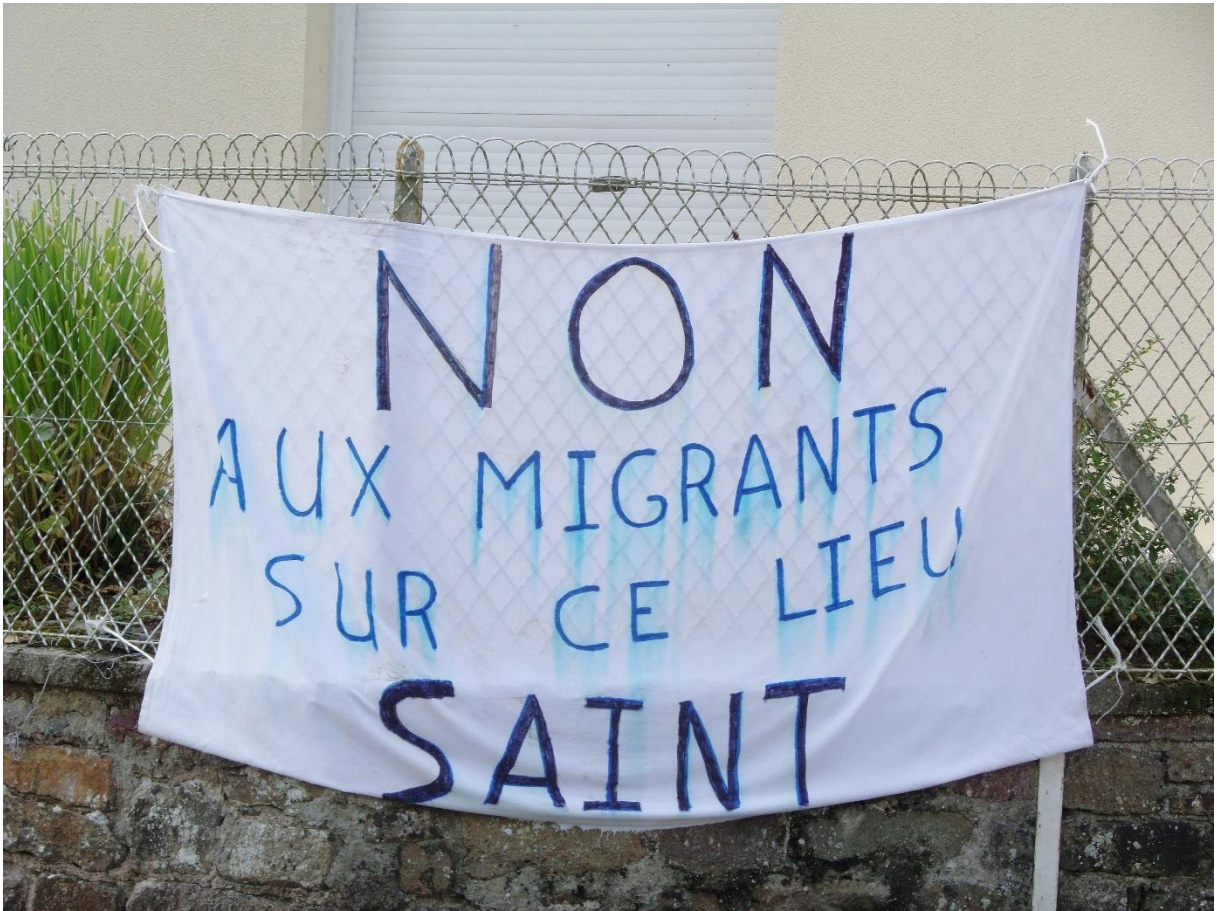 NON
AUX MIGRANTS
SUR CE LIEU
SAINT